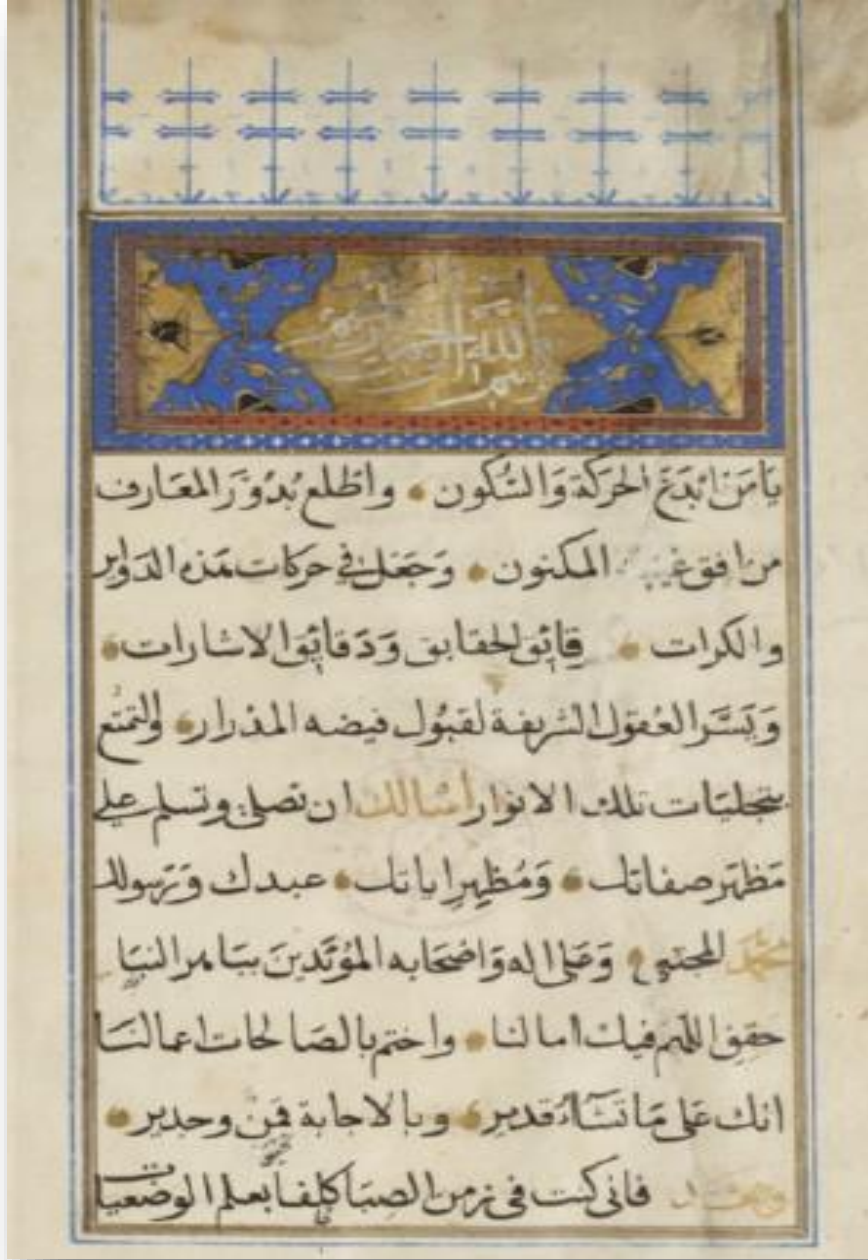 بسم الله الرحمن الرحيم
يَا مَن ابْدَعَ الحَرَكَة وَالسُّكون واطلع بُدُوْرَ المعَارف
من افق المكنون وَجَعَل في حركات هَذه الدَواير
والكرات قائق الحقايق وَدَقائق الاشارات
وَيَسَّر العُقول الشريفة لقبُول فيضه المدْرار والتمتع
بتجليَات تلك الانوار أسْالك ان تصلي وتسلم على
مَظهَر صفاتك وَمُظهِر اياتك عبدك وَرَسولك
محمَّد المجتبى وَعَلى اله وَاصْحَابه المؤيَّدينَ
حقق اللهم فيك امالنا واختم بالصَالحات اعمالنَا
انك عَلى مَا تشَآءُ قدير وبالاجابة قمن وجدير
وبعد فاني كنت في زمن الصِبَا كلِفاً بعلم الوضعيات